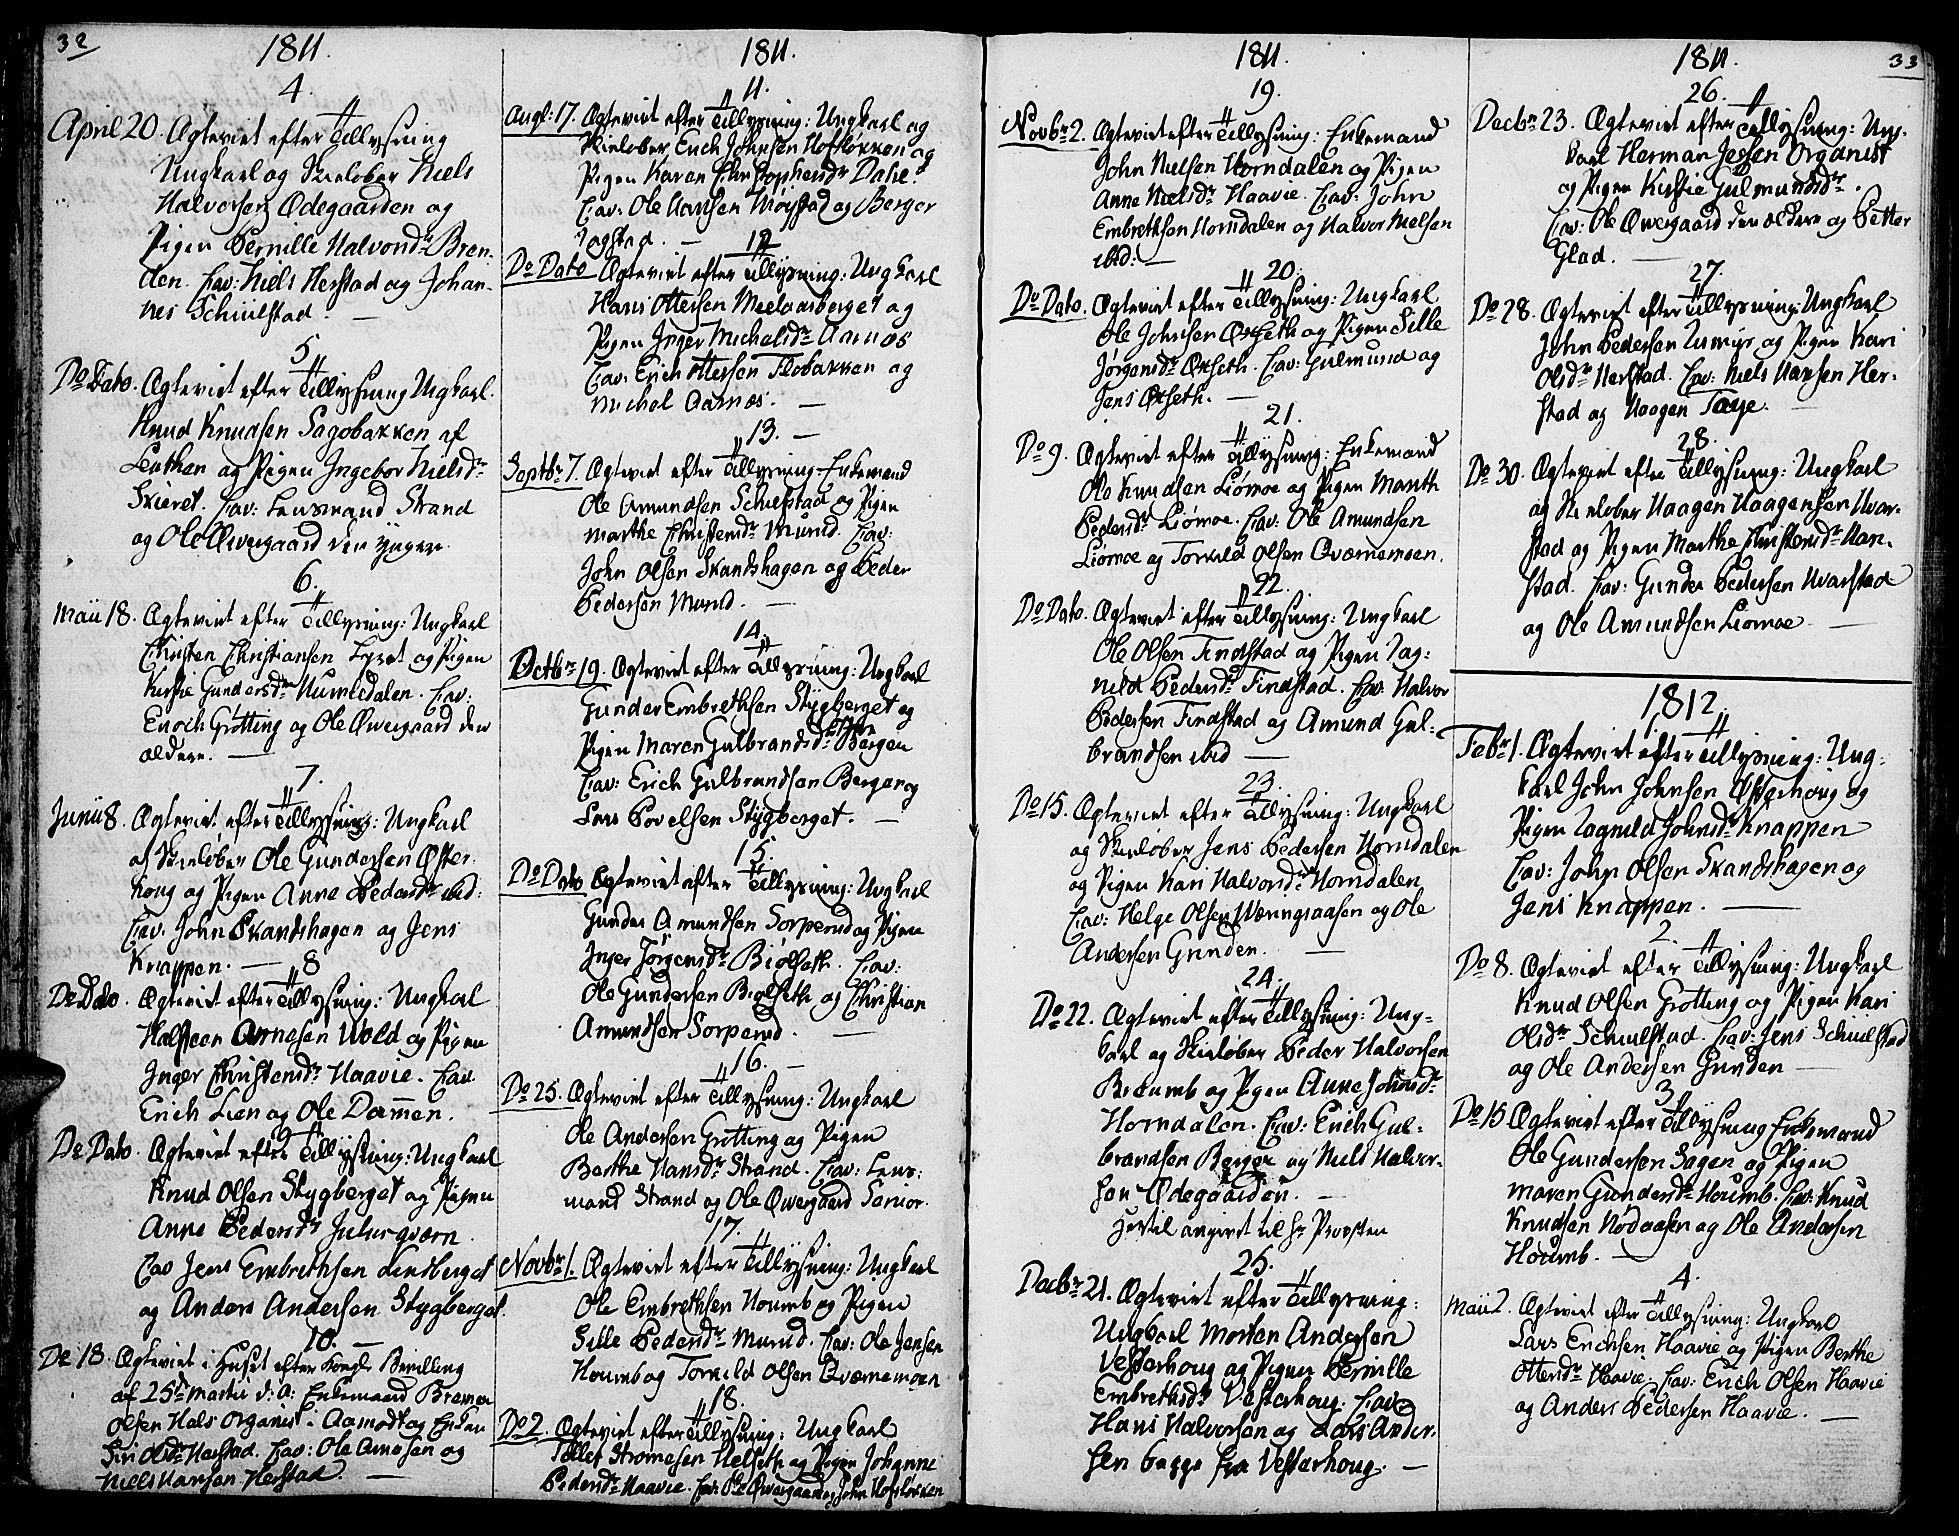 32
1811.
4.
April 20. Ægteviet efter # Tillysning
Ungkarl og Skieløber Niels
Halvorsen Ødegaarden og
Pigen Pernille Halvorsdr Bren-
den. Cav: Niels Herstad og Johan-
nes Schiulstad. —
5.
Do Dato. Ægteviet efter # Tillysning Ungkarl.
Knud Knudsen Sagobakken af
og Pigen Ingebor Nielsdr
Skieret. Cav: Lensmand Strand
og Ole Øwergaard den Yngere.
6.
Maii 18. Ægteviet efter # Tillysning: Ungkarl
Christen Christiansen og Pigen
Kirstie Gundersdr Humledalen. Cav:
Enoch Grøtting og Ole Øwergaard den
ældere. —
7.
Junii 8. Ægteviet efter # Tillysning: Ungkarl
og Skieløber Ole Gundersen Øster-
houg og Pigen Anne Pedersdr ibid:
Cav: John Skandshagen og Jens
Knappen. —
8
Do Dato. Ægteviet efter # Tillysning: Ungkarl
Halsteen Arnesen Wold og Pigen
Inger Christensdr Haavie. Cav.
Erich Lien og Ole Dammen.
Do Dato. Ægteviet efter # Tillysning: Ungkarl
Knud Olsen Stygberget og Pigen
Anne Pedersdr Julusqværn.
Cav Jens Embrethsen Lindberget
og Anders Andersen Stygberget.
10. —
Do 18. Ægteviet i Huset efter Kongl. Bevilling
af 25de Martii d: A: Enkemand Bramer
Olsen Hals Organist i Aamodt og Enken
Siri Olsdr Herstad. Cav: Ole Arnesen og
Niels Hansen Herstad. —
1811.
11.
Augt: 17. Ægteviet efter # Tillysning: Ungkarl og
Skieløber Erich Johnsen Hofsløkken og
Pigen Karen Christophersdr Dahl.
Cav: Ole Hansen Møystad og Berger
—
12
Do Dato Ægteviet efter # Tillysning: Ungkarl
Hans Ottersen Meelaasberget og
Pigen Inger Michelsdr Aarnæs
Cav: Erich Ottersen Flobakken og
Michel Aarnæs. —
13. —
Septbr 7. Ægteviet efter # Tillysning Enkemand
Ole Amundsen Schiefstad og Pigen
Marthe Christensdr Mund. Cav:
John Olsen Skandshagen og Peder
Pedersen Mund. —
14.
Octbr 19. Ægteviet efter # Tillysning: Ungkarl
Gunder Embrethsen Stygberget og
Pigen Maren Gulbrandsdr Bergen
Cav: Erich Gulbrandsen Berger og
Lars Povelsen Stygberget. —
15.
Do Dato Ægteviet efter # Tillysning: Ungkarl
Gunder Amundsen Sorperud og Pigen
Inger Jørgensdr Biølseth. Cav:
Ole Gundersen Biølseth og Christian
Amundsen Sorperud. —
16. —
Do 25. Ægteviet efter # Tillysning: Ungkarl
Ole Andersen Grøtting og Pigen
Berthe Hansdr Strand. Cav: Lens-
mand Strand og Ole Øwergaard Senior.
17.
Novbr 1. Ægteviet efter # Tillysning: Ungkarl
Ole Embrethsen Houmb og Pigen
Sille Pedersdr Murud. Cav: Ole Jensen
Houmb og Torkild Olsen Qværnemoen
18.
Do 2. Ægteviet efter # Tillysning: Ungkarl
Tollef Stromesen Helseth og Pigen Johanne
Pedersdr Haavie. Cav: Ole Øwergaard og John Hofsløkken
1811.
19.
Novbr 2. Ægteviet efter # Tillysning: Enkemand
John Nielsen Horndalen og Pigen
Anne Nielsdr Haavie. Cav: John
Embrethsen Horndalen og Halvor Nielsen
ibid: —
20.
Do Dato. Ægteviet efter # Tillysning: Ungkarl
Ole Johnsen Øxseth og Pigen Sille
Jørgensdr Øxseth. Cav: Gulmund og
Jens Øxseth. —
21.
Do 9. Ægteviet efter # Tillysning: Enkemand
Ole Knudsen Liømoe og Pigen Marth
Pedersdr Liømoe. Cav: Ole Amundsen
Liømoe og Torkild Olsen Qværnemoen.
22.
Do Dato. Ægteviet efter # Tillysning: Ungkarl
Ole Olsen Findstad og Pigen Rag-
nild Pedersdr Findstad. Cav: Halvor
Pedersen Findstad og Amund Gul-
brandsen ibid —
23.
Do 15. Ægteviet efter # Tillysning: Ungkarl
og Skieløber Jens Pedersen Horndalen
og Pigen Kari Halvorsdr Horndalen
Cav: Helge Olsen Væringsaasen og Ole
Andersen Grinden. —
24.
Do 22. Ægteviet efter # Tillysning: Ung-
karl og Skieløber Peder Halvorsen
Bieumb og Pigen Anne Johnsdr
Horndalen. Cav: Erich Gul-
brandsen Berger og Niels Halvor-
sen Ødegaarden. —
Hertil angivet til Hr Provsten
25.
Decbr 21. Ægteviet efter # Tillysning:
Ungkarl Morten Andersen
Vesterhoug og Pigen Pernille
Embrethsdr Vesterhoug. Cav:
Hans Halvorsen og Lars Ander-
sen begge fra Vesterhoug. —
33
1811.
26.
Decbr 23. Ægteviet efter # Tillysning: Ung-
karl Herman Jessen Organist
og Pigen Kirstie Gulmundsdr.
Cav: Ole Øwergaard den ældere og Petter
Glad. —
27.
Do 28. Ægteviet efter # Tillysning: Ungkarl
John Pedersen og Pigen Kari
Olsdr Herstad. Cav: Niels Hansen Her-
stad og Haagen Taye. —
28.
Do 30. Ægteviet efter # Tillysning: Ungkarl
og Skieløber Haagen Haagensen Hvar-
stad og Pigen Marthe Christensdr Han-
stad. Cav: Gunder Pedersen Hvarstad
og Ole Amundsen Liømoe. —
1812.
1.
Febr 1. Ægteviet efter # Tillysning: Ung-
karl John Johnsen Østerhoug og
Pigen Ragnild Johnsdr Knappen
Cav: John Olsen Skandshagen og
Jens Knappen. —
2.
Do 8. Ægteviet efter # Tillysning: Ungkarl
Knud Olsen Grøtting og Pigen Kari
Olsdr Schiulstad. Cav: Jens Schiulstad
og Ole Andersen Grinden —
3.
Do 15 Ægteviet efter # Tillysning Enkemand
Ole Gundersen Sagen og Pigen
Maren Gundersdr Houmb. Cav: Knud
Knudsen Nødaasen og Ole Andersen
Houmb. —
4.
Maii 2. Ægteviet efter # Tillysning: Ungkarl
Lars Erichsen Haavie og Pigen Berthe
Ottersdr Haavie. Cav: Erich Olsen Haavie
og Anders Pedersen Haavie. —